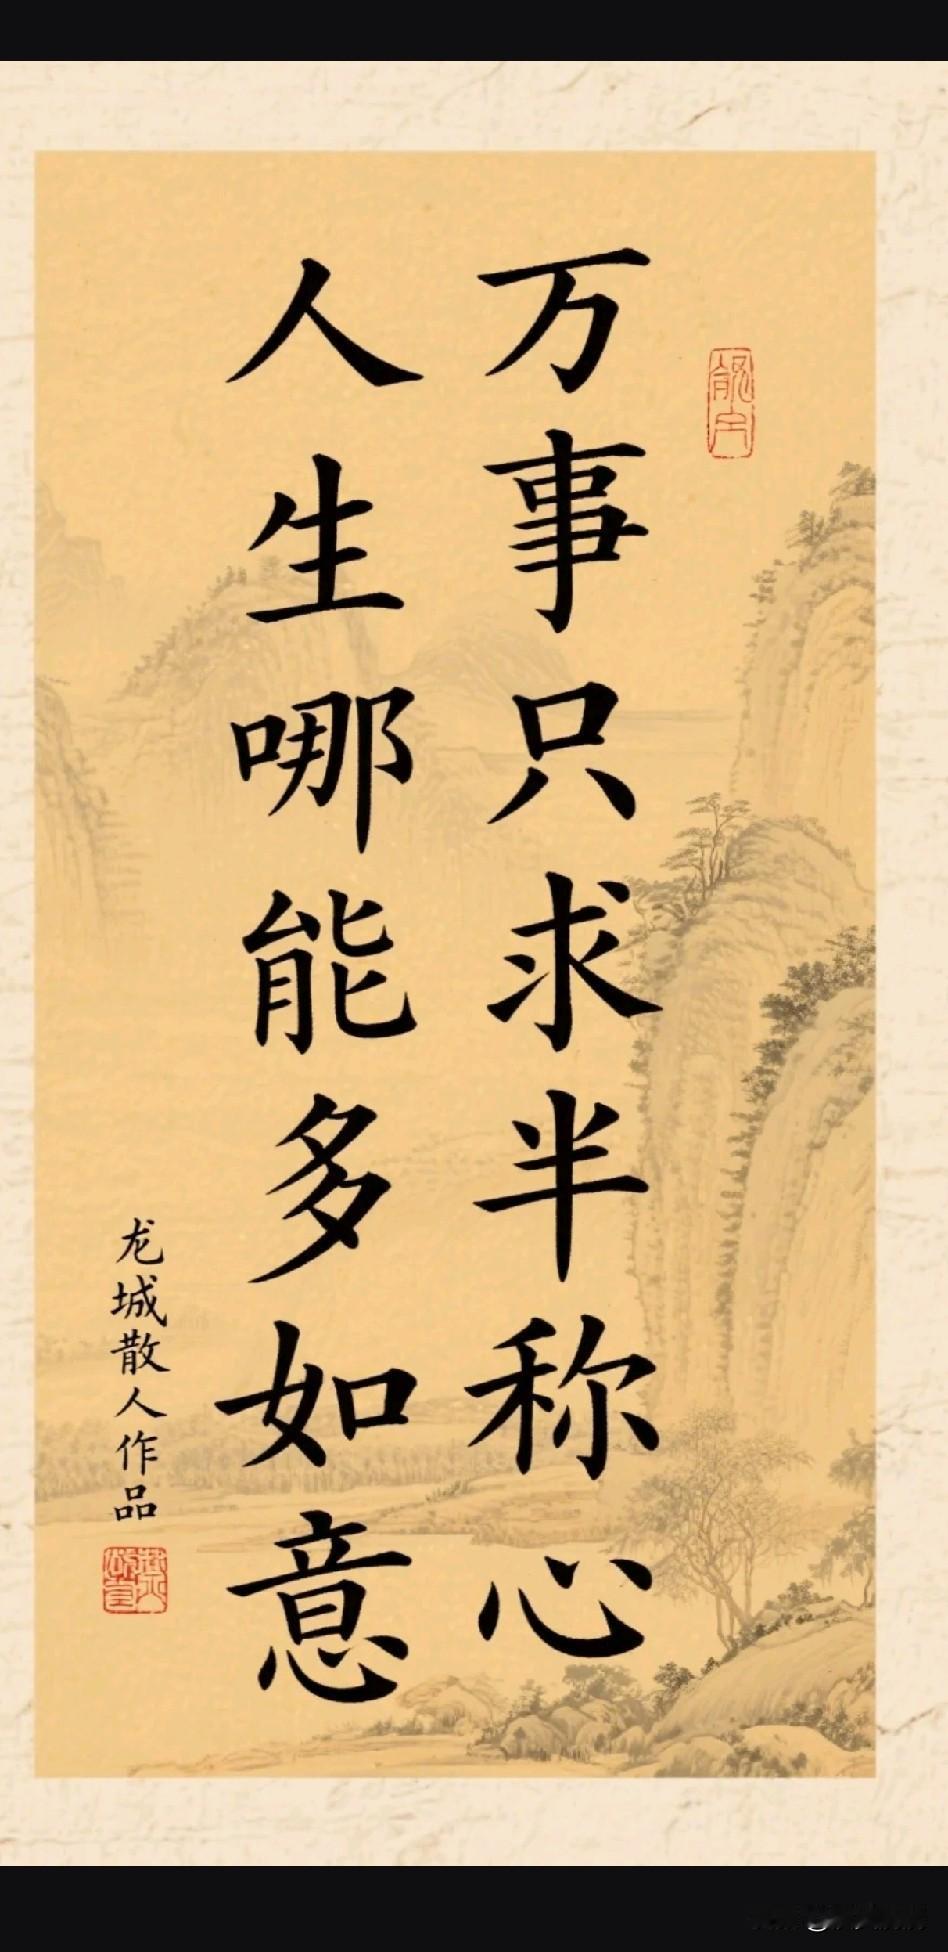 万事只求半称心
人生哪能多如意
龙城散人作品